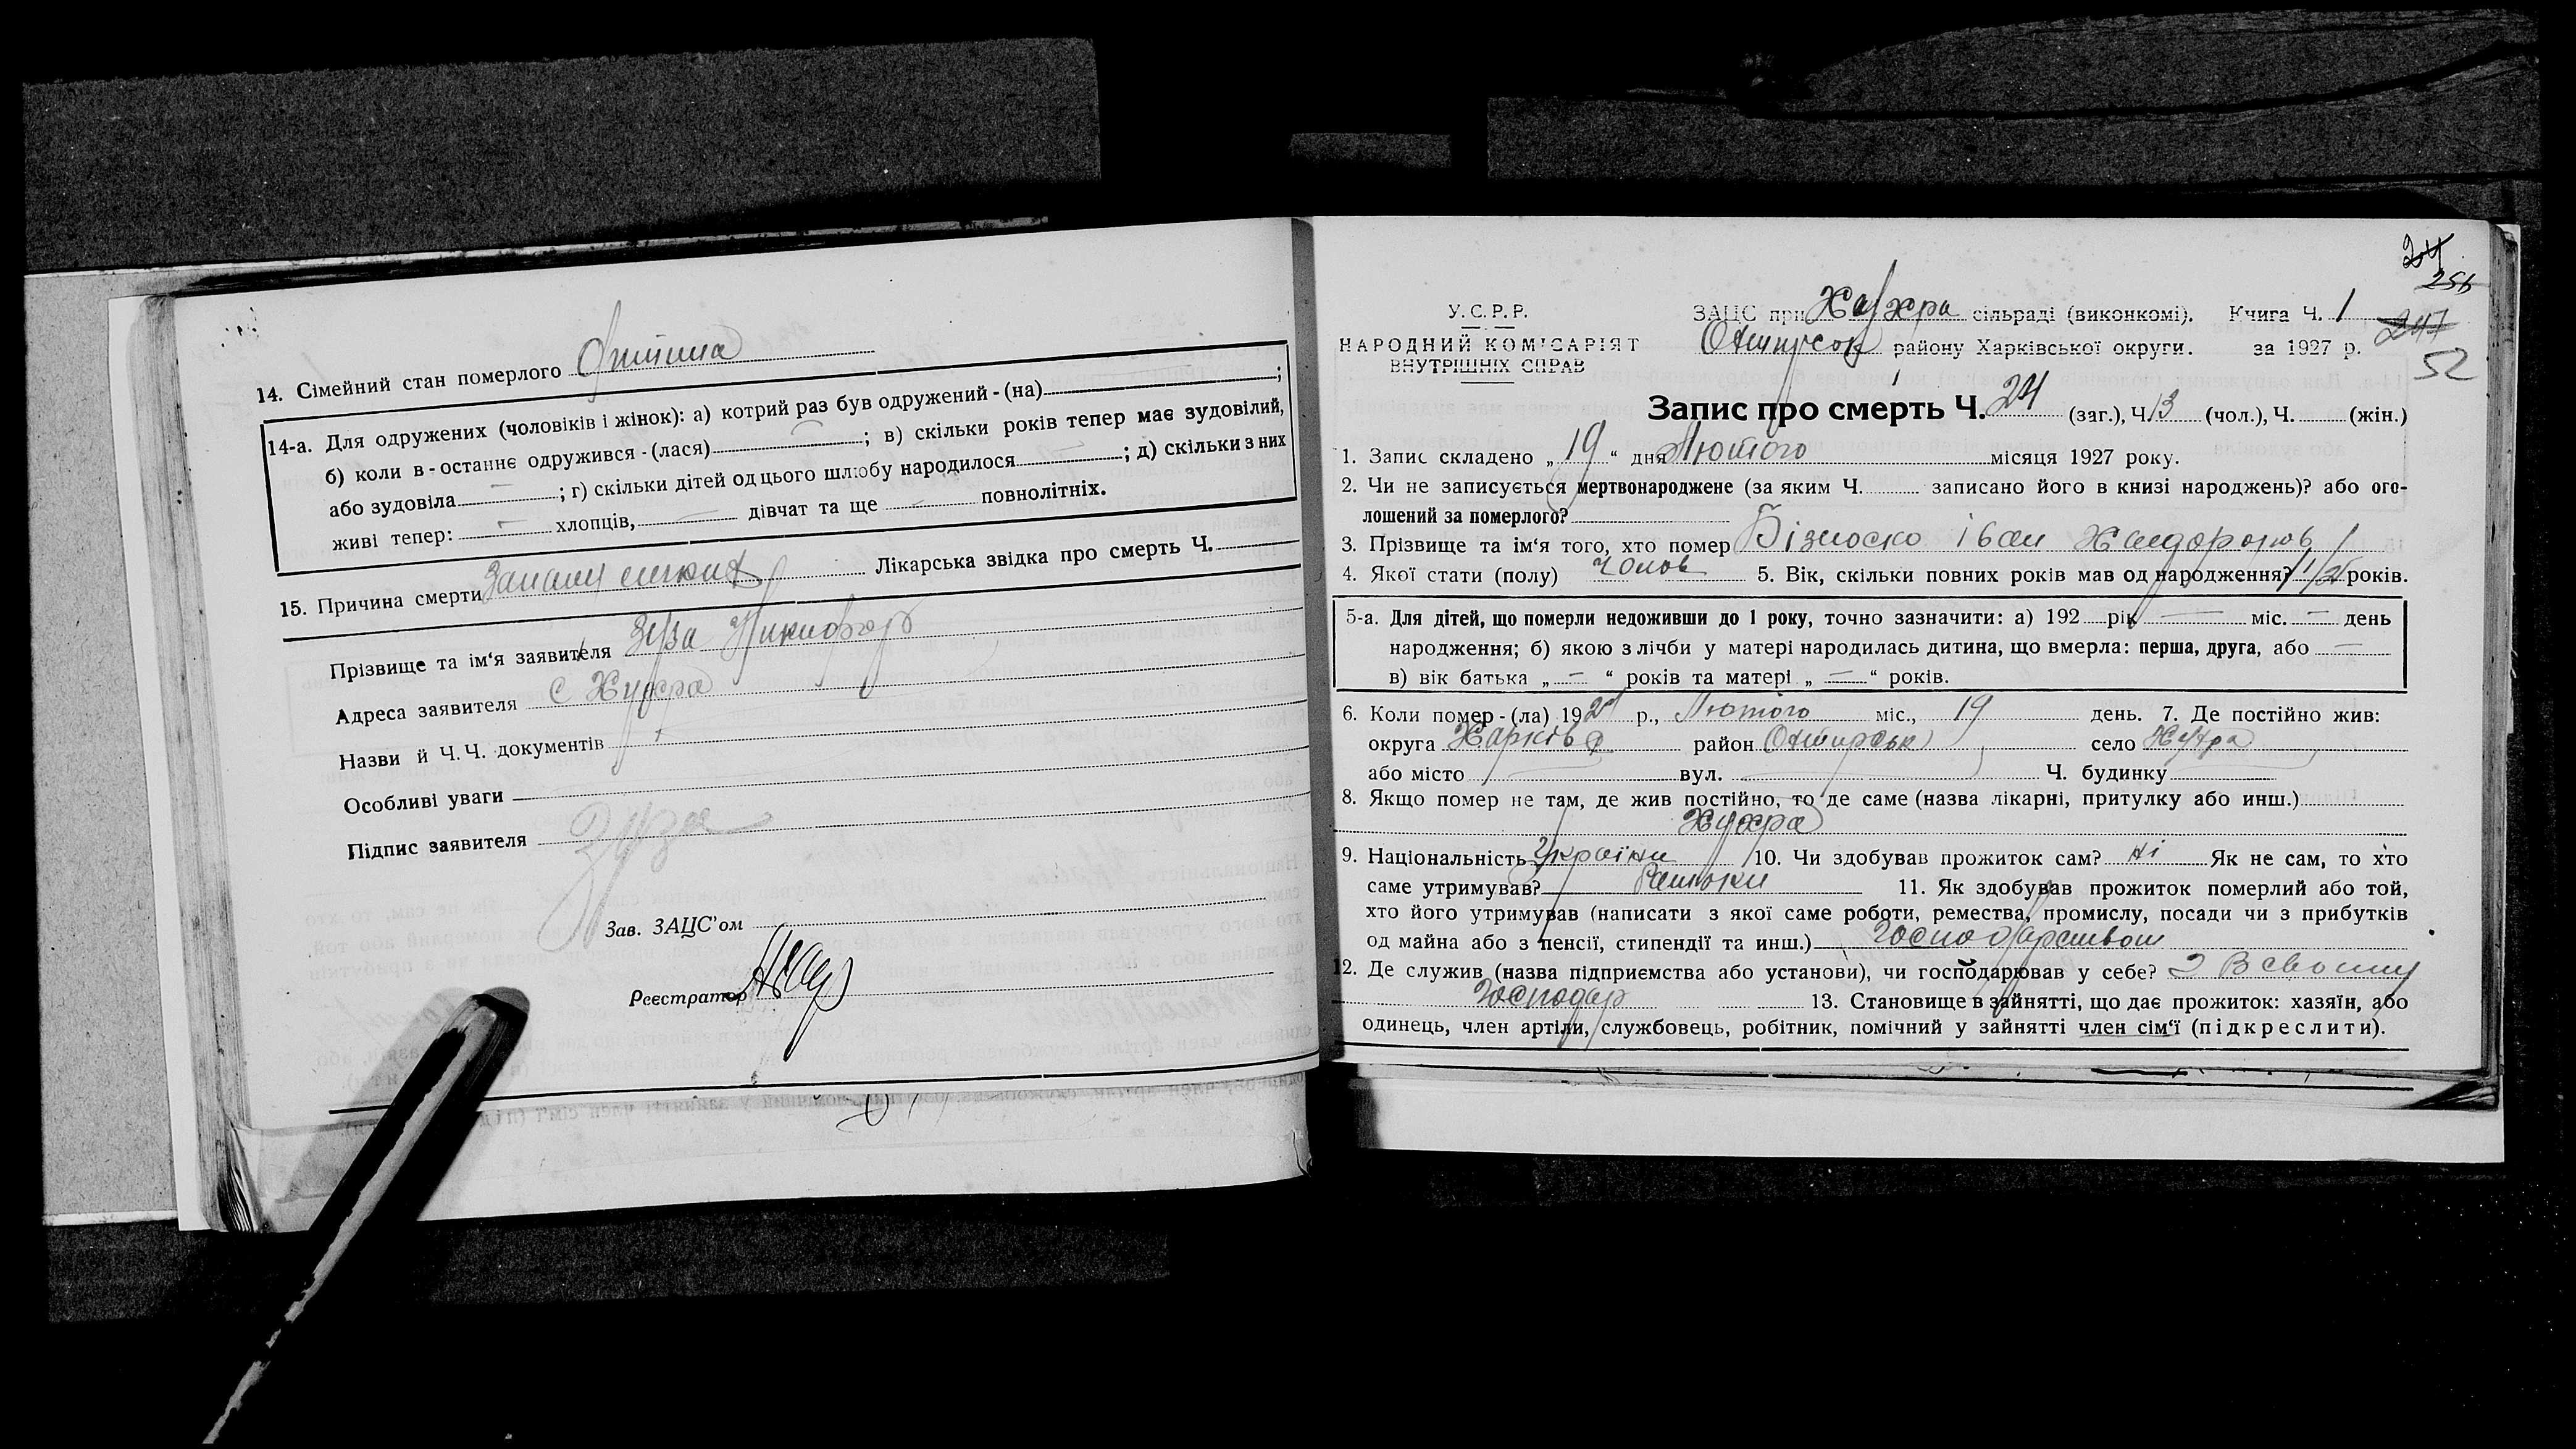 14. Сімейний стан померлого дитина
14-а. Для одружених (чоловіків і жінок): а) котрий раз був одружений - (на) ;
б) коли в - останнє одружився - (лася) ; в) скільки років тепер має зудовілий,
або зудовіла ; г) скільки дітей од цього шлюбу народилося ; д) скільки з них
живі тепер: хлопців, дівчат та ще повнолітніх.
15. Причина смерти Запали легких Лікарська звідка про смерть Ч.
Прізвище та ім'я заявителя Зуза Никифор
Адреса заявителя с Хухра
Назви й Ч. Ч. документів
Особливі уваги
Підпис заявителя Зуза
Зав. ЗАЦС'ом
Реєстратор
24
256
247
52
У. С. Р. Р.
НАРОДНИЙ КОМІСАРІЯТ
ВНУТРІШНІХ СПРАВ
ЗАЦС при Хухра сільраді (виконкомі). Книга Ч. 1
Охтирськ району Харківської округи. за 1927 р.
Запис про смерть Ч. 24 (заг.), Ч. 13 (чол.), Ч. (жін.)
1. Запис складено „ 19 “ дня Лютого місяця 1927 року.
2. Чи не записується мертвонароджене (за яким Ч. записано його в книзі народжень)? або ого-
лошений за померлого?
3. Прізвище та ім'я того, хто помер Іван
4. Якої стати (полу) Чолов 5. Вік, скільки повних років мав од народження? 1/2 років.
5-а. Для дітей, що померли недоживши до 1 року, точно зазначити: а) 192 рік — міс. — день
народження; б) якою з лічби у матері народилась дитина, що вмерла: перша, друга, або —
в) вік батька „ — “ років та матері „ — “ років.
6. Коли помер - (ла) 192 р., Лютого міс., 19 день. 7. Де постійно жив:
округа Харків район Охтирськ село Хухра
або місто вул. Ч. будинку
8. Якщо помер не там, де жив постійно, то де саме (назва лікарні, притулку або инш.)
Хухра
9. Національність Україн 10. Чи здобував прожиток сам? ні Як не сам, то хто
саме утримував? Батьки 11. Як здобував прожиток померлий або той,
хто його утримував (написати з якої саме роботи, ремества, промислу, посади чи з прибутків
од майна або з пенсії, стипендії та инш.) Господарством
12. Де служив (назва підприємства або установи), чи господарював у себе? В своему
господар 13. Становище в зайнятті, що дає прожиток: хазяїн, або
одинець, член артіли, службовець, робітник, помічний у зайнятті член сім'ї (підкреслити).